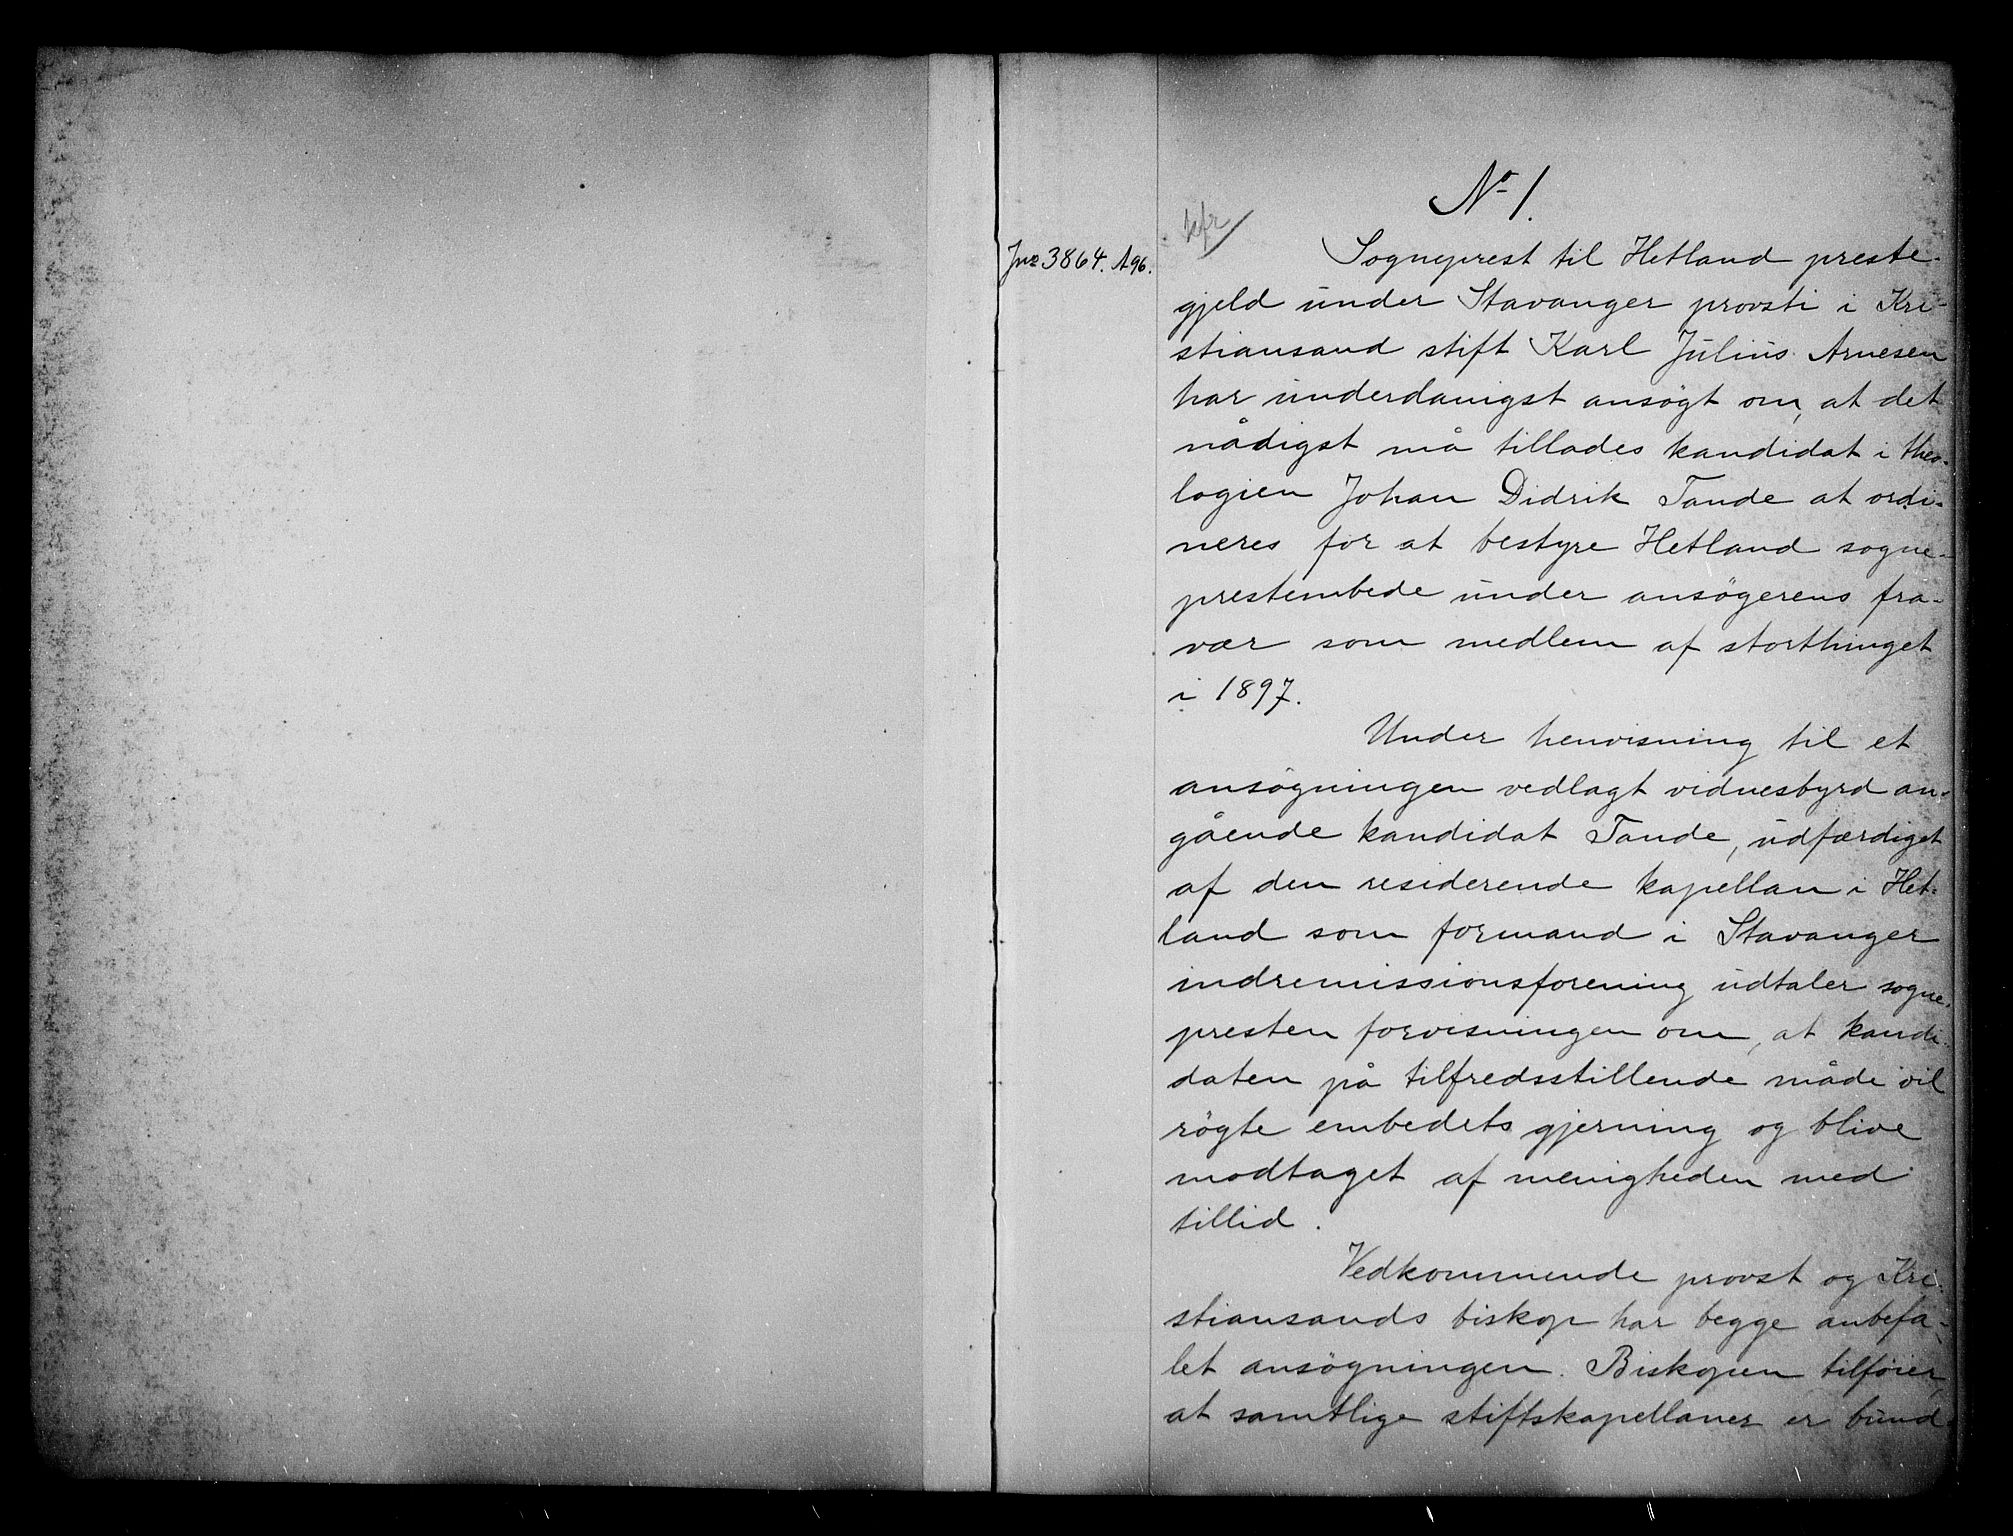 No 1.
kfr
Jnr 3864. A 96.
Sogneprest til Hetland preste-
gjeld under Stavanger provsti i Kri-
stiansand stift Karl Julius Arnesen
har underdanigst ansøgt om, at det
nådigst må tillades kandidat i theo-
logien Johan Didrik Tande at ordi-
neres for at bestyre Hetland sogne-
prestembede under ansøgerens fra-
vær som medlem af storthinget
i 1897.
Under henvisning til et
ansøgningen vedlagt vidnesbyrd an-
gående kandidat Tande, udfærdiget
af den residerende kapellan i Het-
land som formand i Stavanger
indremissionsforening udtaler sogne-
presten forvisningen om, at kandi-
daten på tilfredsstillende måde vil
røgte embedets gjerning og blive
modtaget af menigheden med
tillid.
Vedkommende provst og Kri-
stiansands biskop har begge anbefa-
let ansøgningen. Biskopen tilføier,
at samtlige stiftskapellaner er bund-